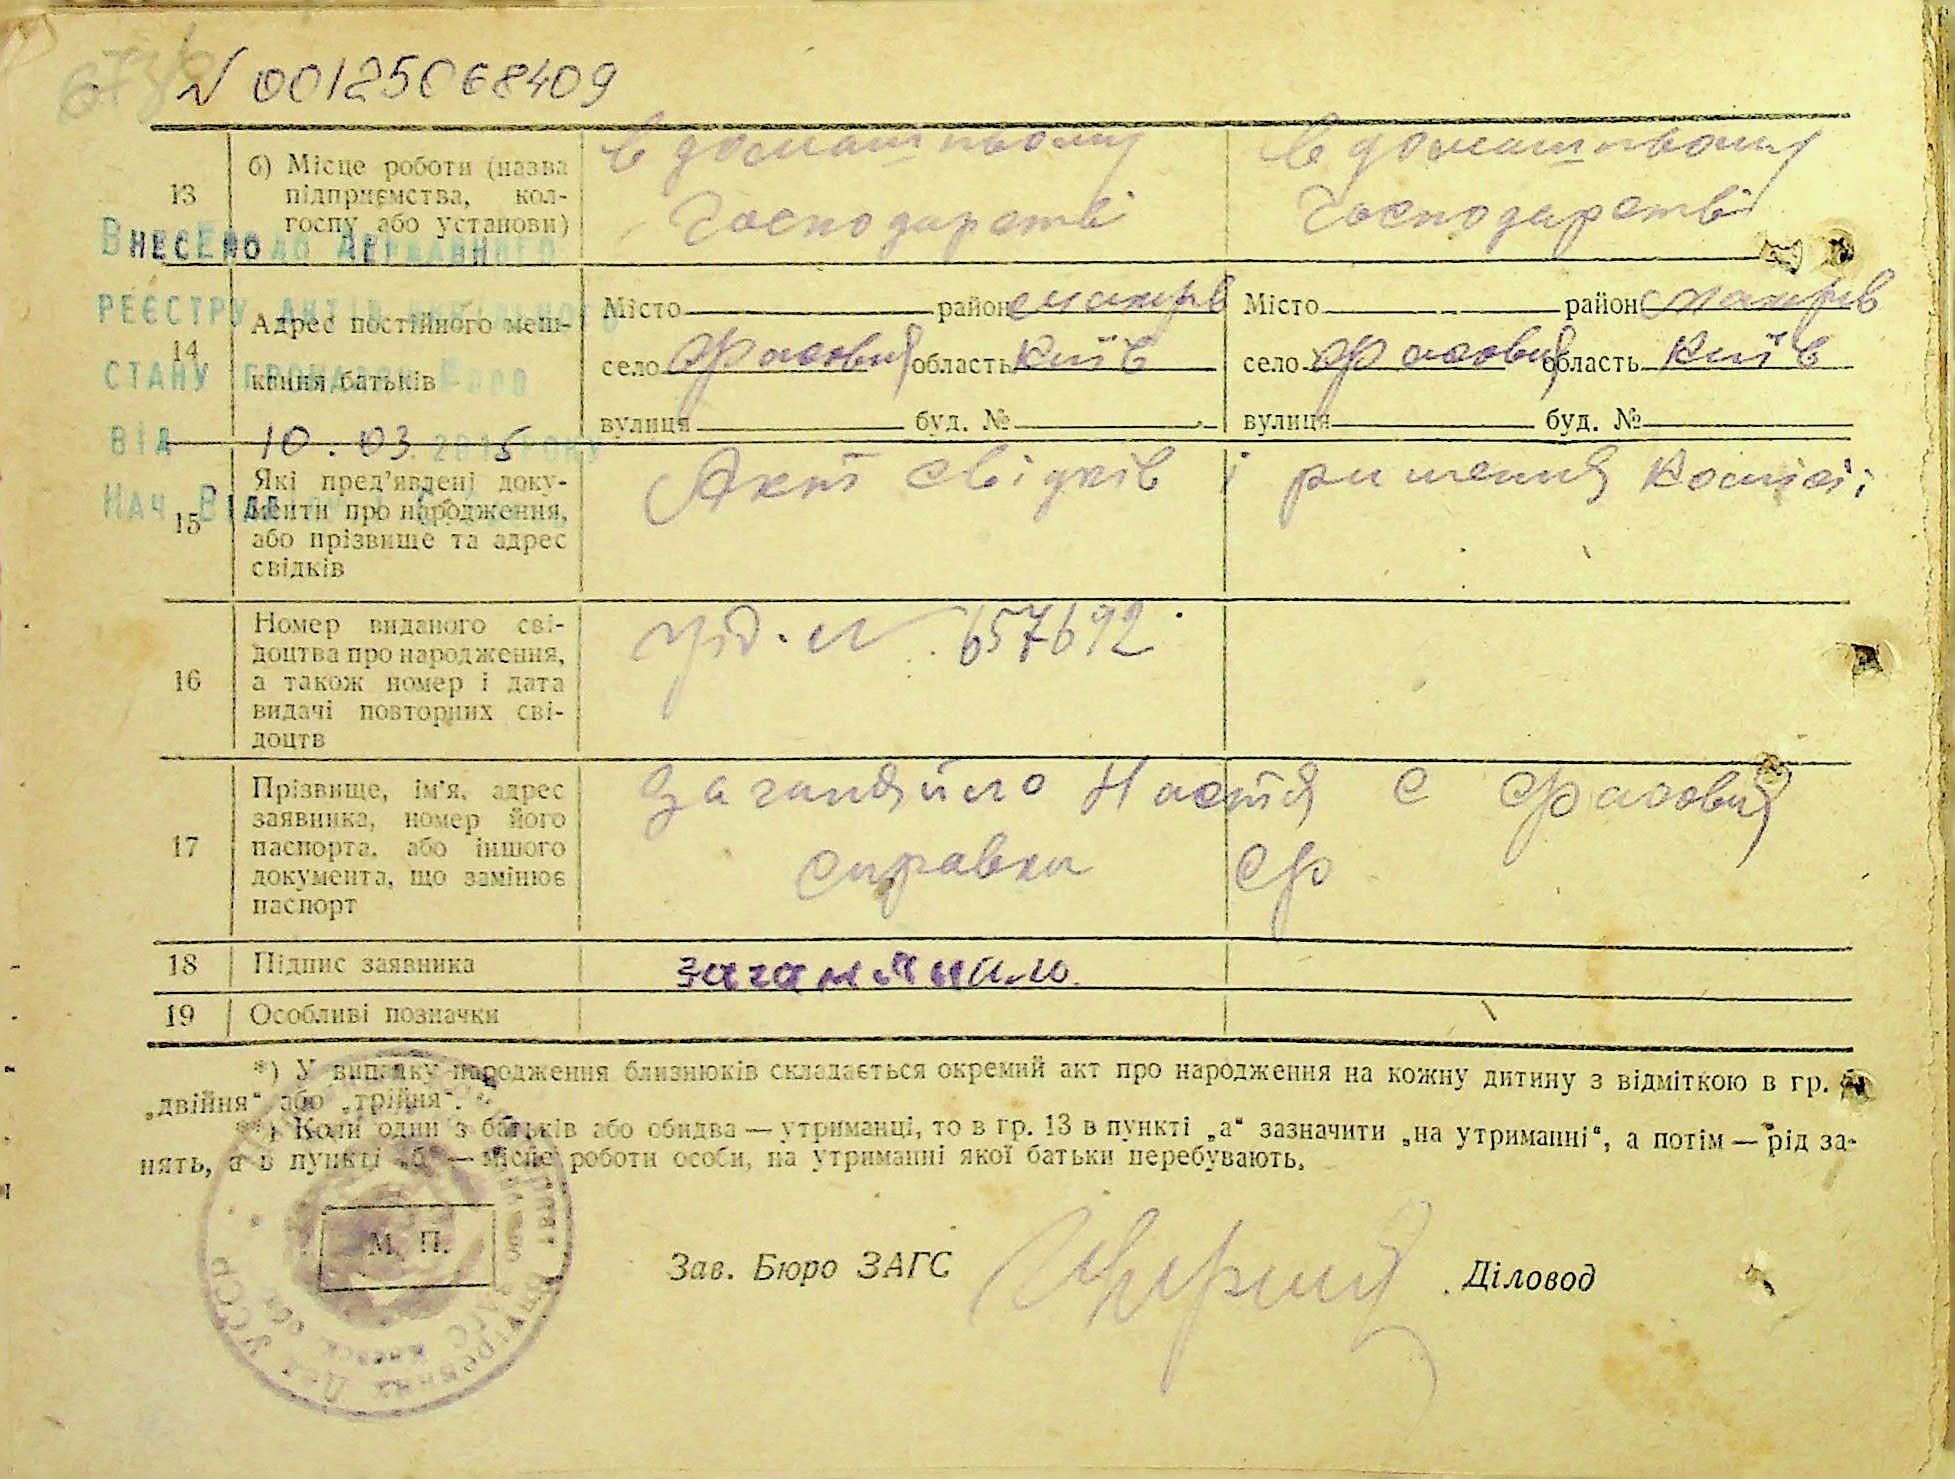 № 00125068409
13
б) Місце роботи (назва
підприємства, кол-
госпу або установи)
в домашньому
господарстві
в домашньому
господарстві
Внесено до Державного
реєстру актів цивільного
стану громадян
від 10.03.2015 року
Нач. Відділу
14
Адрес постійного меш-
кання батьків
Місто район Макарів
село Фасовая область Київ
вулиця буд. №
Місто район Макарів
село Фасовая область Київ
вулиця буд. №
15
Які пред'явлені доку-
менти про народження,
або прізвище та адрес
свідків
Акт свідків і ришення комісії
16
Номер виданого сві-
доцтва про народження,
а також номер і дата
видачі повторних сві-
доцтв
№ 657692
17
Прізвище, ім'я, адрес
заявника, номер його
паспорта, або іншого
документа, що замінює
паспорт
Заганяйло Настя с Фасовая
справка
18
Підпис заявника
Заганяйло
19
Особливі позначки
*) У випадку народження близнюків складається окремий акт про народження на кожну дитину з відміткою в гр.
„двійня“ або „трійня“.
**) Коли один з батьків або обидва — утриманці, то в гр. 13 в пункті „а“ зазначити „на утриманні“, а потім — рід за-
нять, а в пункті „б“ — місце роботи особи, на утриманні якої батьки перебувають.
М. П.
Зав. Бюро ЗАГС
Діловод